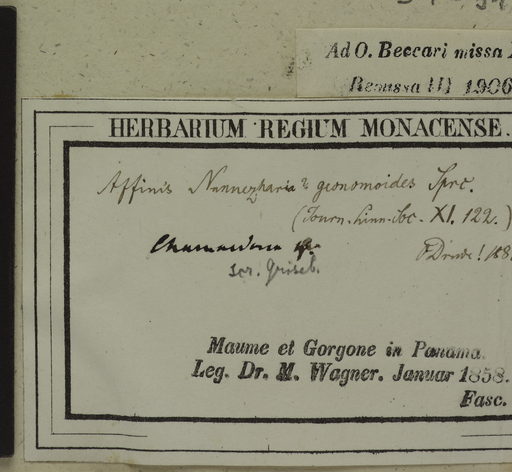 Ad O. Beccari missa
Remissa III 1906
HERBARIUM REGIUM MONACENSE.
Affinis Nunnezharia? geonomoides Sprc.
(Journ. Linn. Soc. XI. 122.)
Chamaedorea sp.
O Drude! 188
scr. Griseb.
Maume et Gorgone in Panama.
Leg. Dr. M. Wagner. Januar 1858.
Fasc.